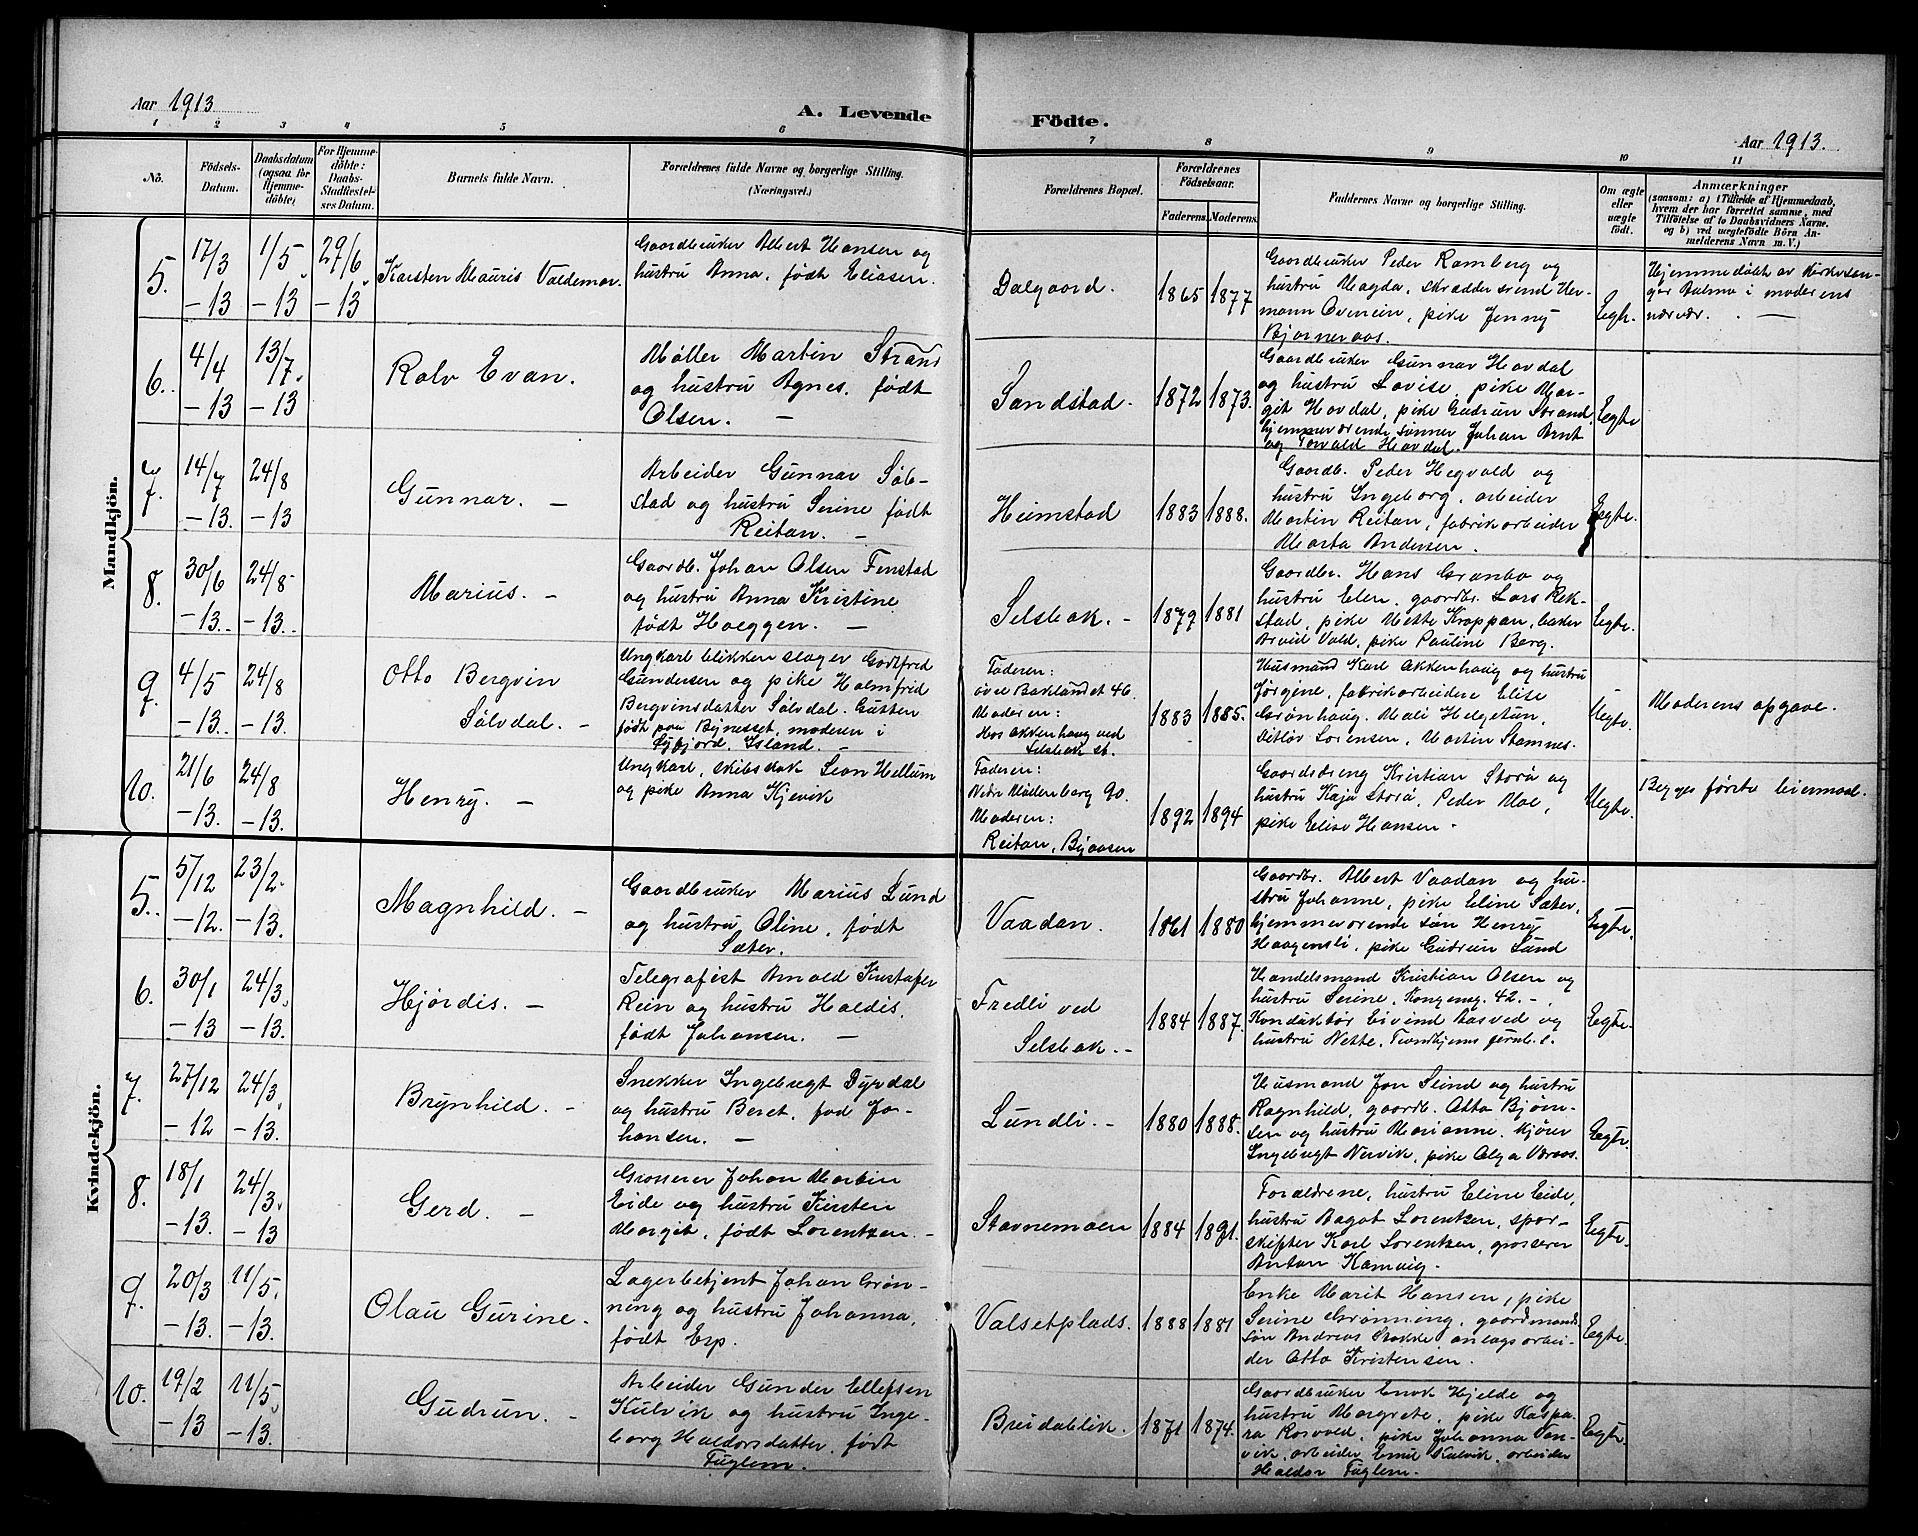 Aar 1913
A. Levende Födte.
Aar 1913.
1 2 3 4 5 6 7 8 9 10 11
No.
Födsels-
Datum.
Daabsdatum
(ogsaa for
Hjemme-
döbte)
For Hjemme-
döbte:
Daabs-
Stadfæstel-
ses Datum.
Barnets fulde Navn.
Forældrenes fulde Navne og borgerlige Stilling.
(Næringsvei.)
Forældrenes Bopæl.
Forældrenes
Födselsaar.
Faderens. Moderens.
Faddernes Navne og borgerlige Stilling.
Om ægte
eller
uægte
födt.
Anmærkninger
(saasom: a) i Tilfælde af Hjemmedaab,
hvem der har forrettet samme, med
Tilföielse af to Daabsvidners Navne.
og b) ved uægtefödte Börn An-
melderens Navn m. V.)
Mandkjön.
5. 17/3 -13 1/5 -13 29/6 -13
Karsten Mauris Valdemar.
Gaardbruker Albert Hansen og
hustru Anna, født Eliasen.
Dalgaard. 1865 1877
Gaardbruker Peder Ramberg og
hustru Magda, skræddersvend Her-
mann Ovenein, pike Jenny
Bjørneraas.
Egte.
Hjemmedøbt av kirkesan-
ger Balmo i moderens
nærvær. —
6. 4/4 -13 13/7 -13
Rolv Evan.
Møller Martin Strand
og hustru Agnes, født
Olsen. —
Sandstad. 1872 1873.
Gaardbruker Gunnar Hovdal
og hustru Lovise, pike Mar-
git Hovdal, pike Gudrun Strand,
hjemmeværende sønner Johan Arnt
og Torvald Hovdal.
Egte
7. 14/7 -13. 24/8 -13
Gunnar. —
Arbeider Gunnar Søb-
stad og hustru Serine født
Reitan. —
Heimstad 1883 1888.
Gaardb. Peder Hegvold og
hustru Ingeborg, arbeider
Martin Reitan, fabrikarbeider
Marta Andersen.
Egte.
8. 30/6 -13. 24/8 -13.
Marius. —
Gaardb. Johan Olsen Fenstad
og hustru Anna Kristine
født Hoeggen. —
Selsbak. — 1879 1881
Gaardbr. Hans Granbo og
hustru Elen, gaardbr. Lars Rek-
stad, pike Mette Kroppan, baker
Arvid Vold, pike Pauline Berg.
Egte.
9. 4/5 -13. 24/8 -13.
Otto Bergvin
Sølvdal. —
Ungkarl blikkenslager Godtfred
Gundersen og pike Holmfrid
Bergvinsdatter Sølvdal. Gutten
født paa Bynesset, moderen i
Øyfjord, Island. —
Faderen:
øvre Baklandet 46.
Moderen:
Hos Akkenhaug ved
Selsbak st.
1883 1885.
Husmand Karl Akkenhaug og hustru
Jørgine, fabrikarbeidere Elise
Grønhaug, Mali Helgetun,
Ditløv Sørensen, Martin Stamnes.
Uegte.
Moderens opgave.
10. 21/6 -13. 24/8 -13.
Henry. —
Ungkarl, skibskok Leon Hellum
og pike Anna Kjevik
Faderen:
Nedre Møllenberg 90.
Moderen:
Reitan, Byaasen
1892 1894
Gaardsdreng Kristian Storø og
hustru Kaja Storø, Peder Moe,
pike Elise Hansen —
Uegte.
Begges første leiermaal.
Kvindekjön.
5. 5/12 -12. 23/2 -13.
Magnhild. —
Gaardbruker Marius Lund
og hustru Oline, født
Sæter.
Vaadan. 1861 1880
Gaardbr. Albert Vaadan og hu-
stru Johanne, pike Eline Sæter,
hjemmeværende søn Henry
Haagensli, pike Gudrun Lund
Egte.
6. 30/1 -13 24/3 -13.
Hjørdis. —
Telegrafist Arnold Kristofer
Rein og hustru Haldis,
født Johansen. —
Fredli ved
Selsbak. —
1884 1887.
Handelsmand Kristian Olsen og
hustru Serine, Kongensg. 42. —,
Konduktør Eivind Aasved og
hustru Nette, Trondhjems jernb. s.
Egte.
7. 27/12 -12 24/3 -13.
Brynhild. —
Snekker Ingebrigt Dyrdal
og hustru Beret, fød Jo-
hansen. —
Lundli. — 1880 1888.
Husmand Jon Leind og hustru
Ragnhild, gaardb. Otto Bjørn-
sen og hustru Marianne, kjører
Ingebrigt Nervik, pike Olga Væraas.
Egte.
8. 18/1 -13. 24/3 -13
Gerd. —
Grosserer Johan Martin
Eide og hustru Kirsten
Margit, født Lorentzen. —
Stavnemoen 1884 1891.
Forældrene, hustru Eline Eide,
hustru Dagot Lorentzen, spor-
skifter Karl Lorentzen, grosserer
Anton Kamvig.
Egte.
9. 20/3 -13. 11/5 -13.
Olau Gurine. —
Lagerbetjent Johan Grøn-
ning og hustru Johanna,
født Erp.
Valsetplads. 1888 1881
Enke Marit Hansen, pike
Serine Grønning, gaardmands
søn Andreas Stokke anlægsarbei-
der Otto Kristensen.
Egte.
10. 19/2 -13 11/5 -13.
Gudrun. —
Arbeider Gunder Ellefsen
Kulvik og hustru Inge-
borg Haldorsdatter, født
Fuglem.
Breidablik. 1871 1874.
Gaardbruker Enok Hjelde og
hustru Margrete, pike Kaspa-
ra Rosvold, pike Johanna Tan-
vik, arbeider Emil Kulvik, arbeider
Haldor Fuglem.
Egte.